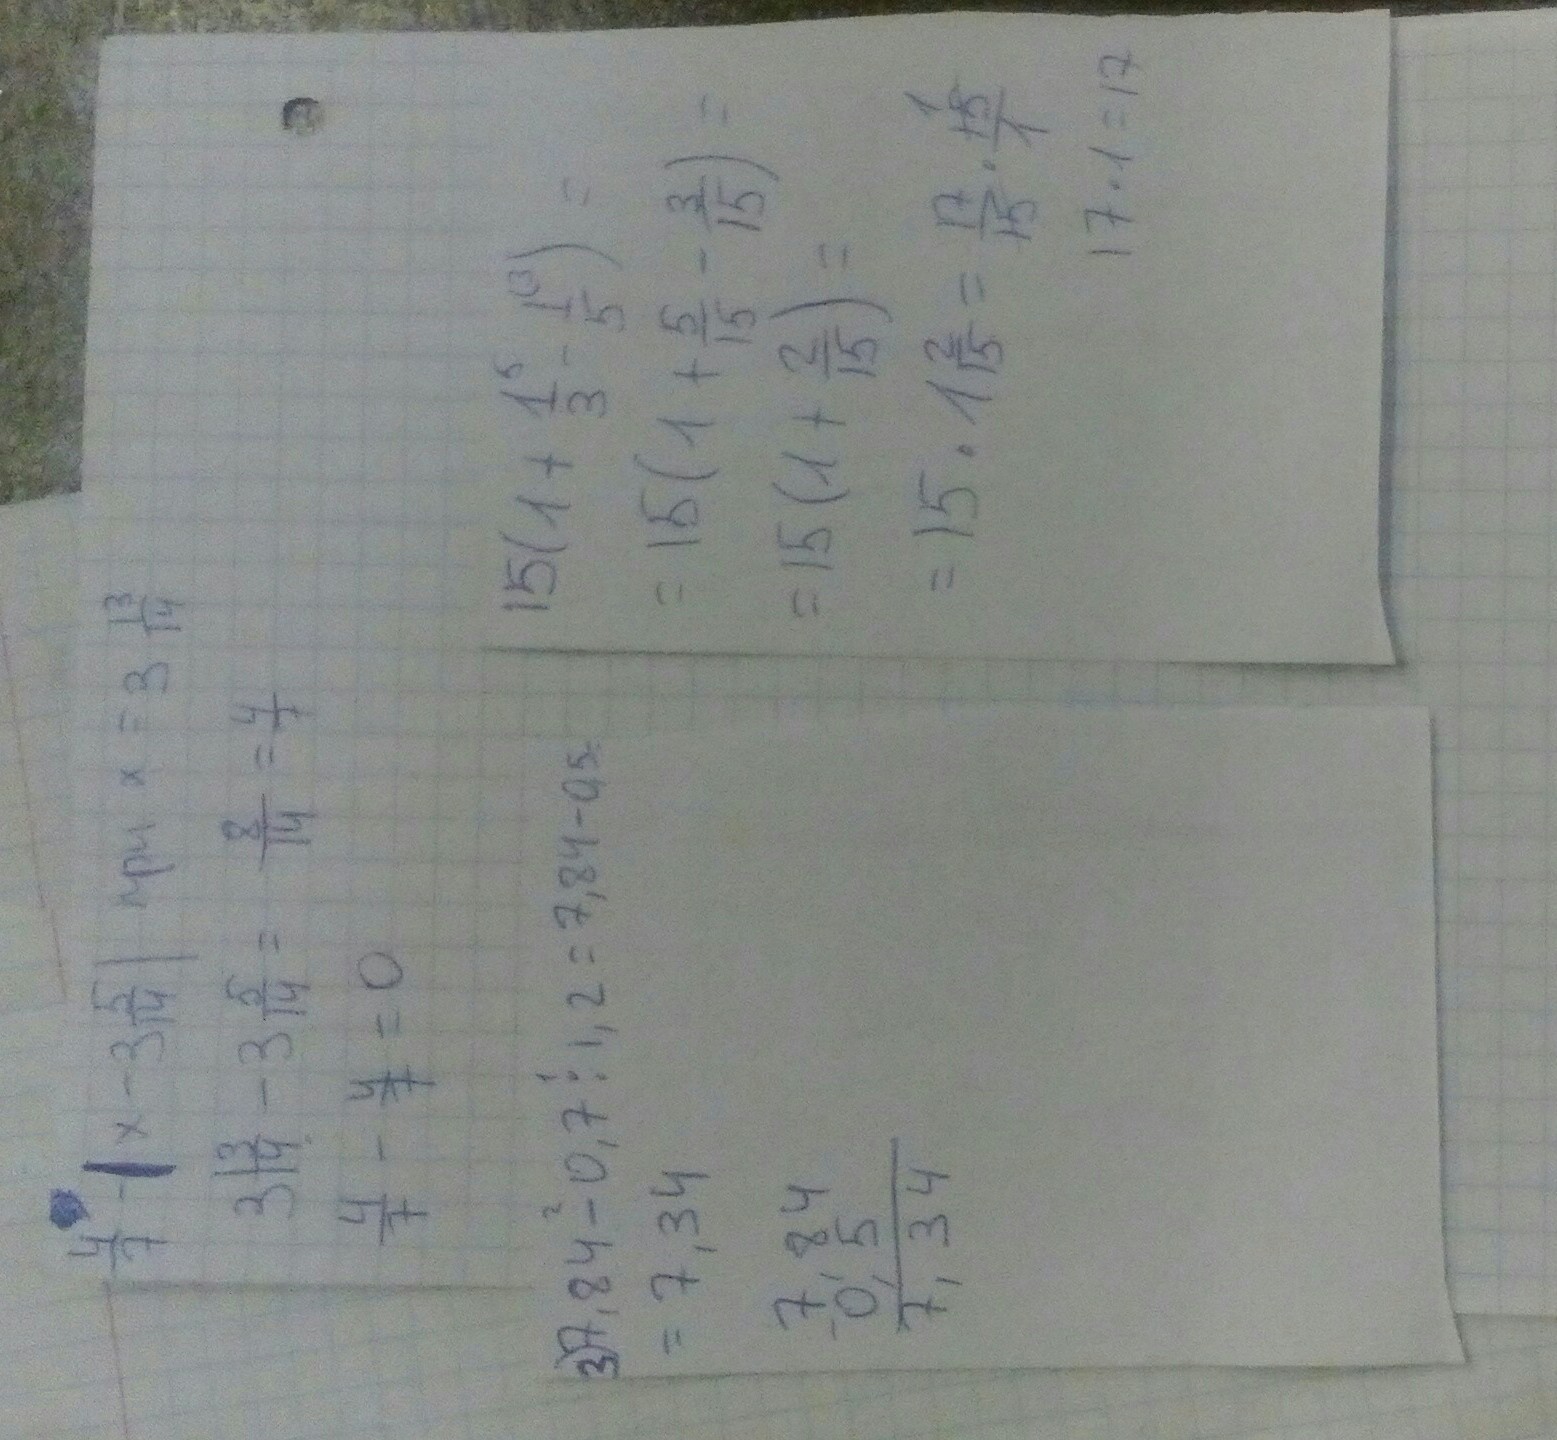 4/7 - |x - 3 5/14| при x = 3 13/14
3 13/14 - 3 5/14 = 8/14 = 4/7
4/7 - 4/7 = 0
37,84 - 0,7 : 1,2 = 7,84 - 0,5
2 1
= 7,34
7,84
-0,5
7,34
15(1 + 1/3 - 1/5) =
= 15(1 + 5/15 - 3/15) =
= 15(1 + 2/15) =
= 15 · 1 2/15 = 17/15 · 15/1
1
17 · 1 = 17